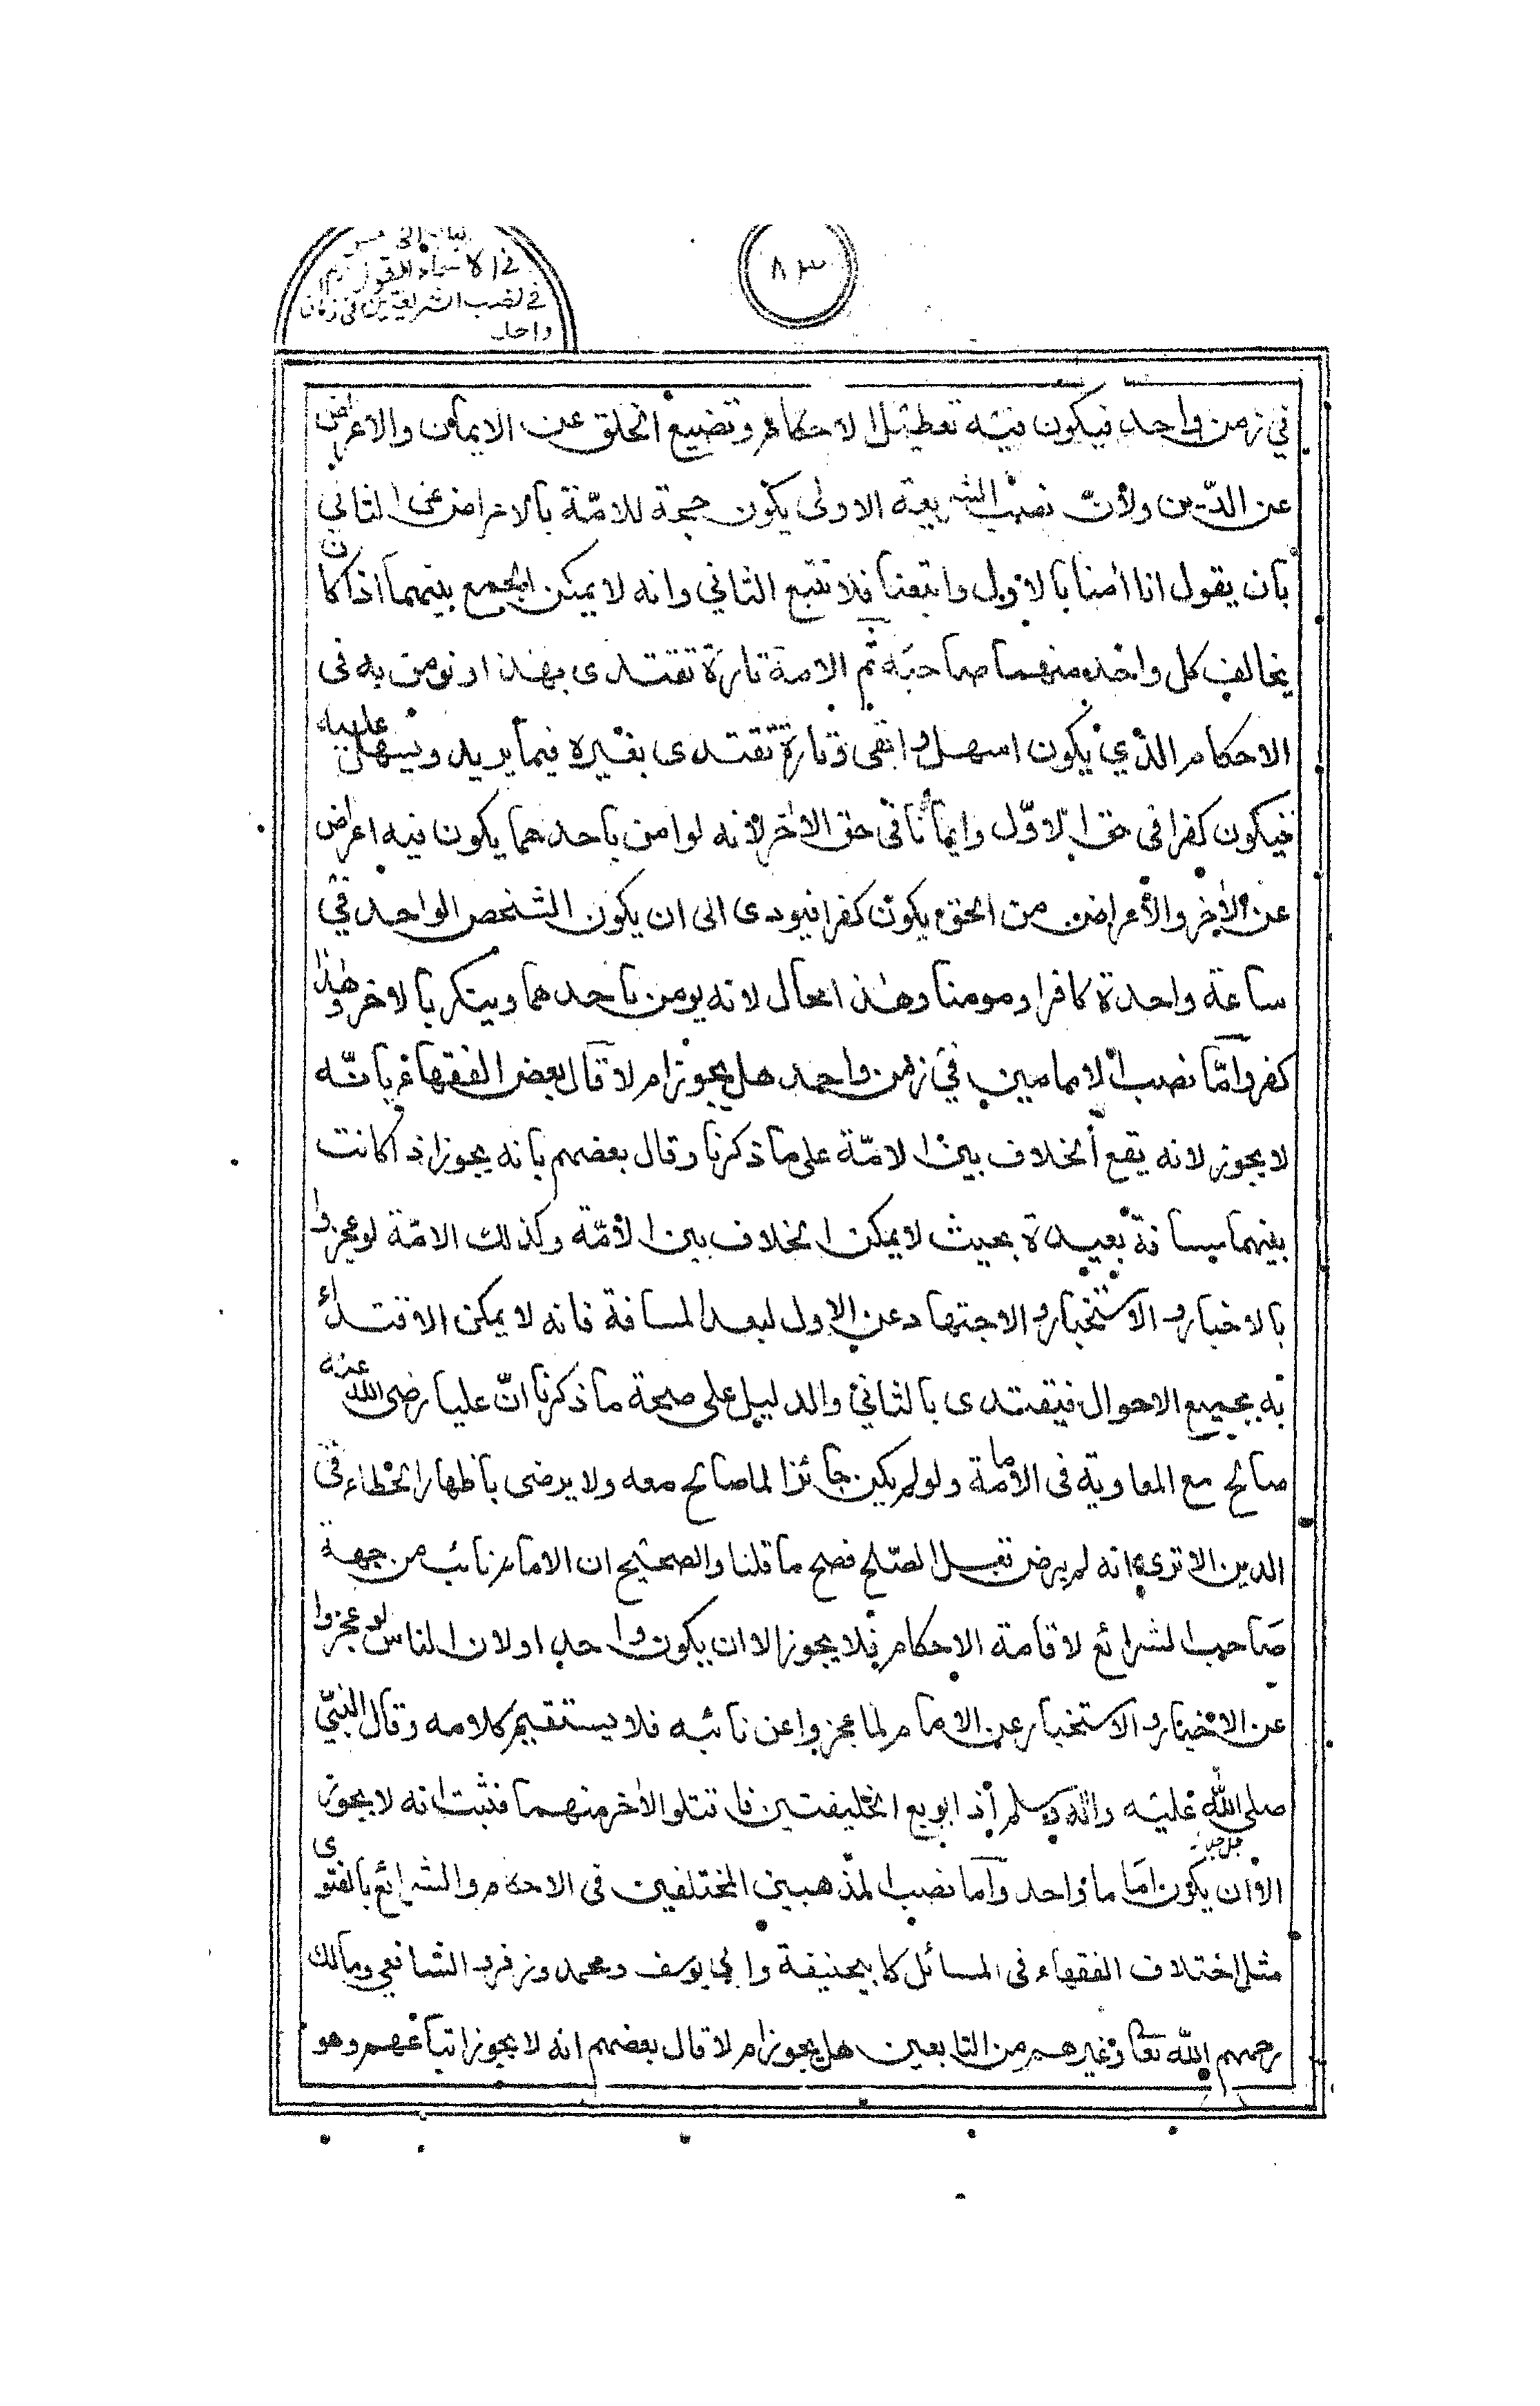 ٨٣
في نصب الشريعتين في زمان
واحد
في زمن واحد فيكون فيه تعطيل الاحكام وتضييع الخلق عن الايمان والاعراض
عن الدّين ولأنّ نصب الشريعة الاولى يكون حجة للامّة بالاعراض عن الثاني
بان يقول انا امنا بالاول واتبعنا فلا نتبع الثاني وانه لا يمكن الجمع بينهما اذا كان
يخالف كل واحد منهما صاحبه ثم الامة تارة تقتدى بهذا ونومن به فى
الاحكام الذي يكون اسهل وانقى وتارة تقتدى بغيره فيما يريد ويسهل عليه
فيكون كفرا في حق الاوّل وايمانا في حق الاخر لأنه لو امن باحدهما يكون فيه اعراض
عن الاخر والأعراض من الحق يكون كفرا فيودى الى ان يكون الشخص الواحد في
ساعة واحدة كافرا ومومنا وهذا محال لانه يومن باحدهما وينكر بالاخر وهذا
كفر وامّا نصب الامامين في زمن واحد هل يجوز ام لا قال بعض الفقهاء بانّه
لا يجوز لانه يقع الخلاف بين الامّة على ما ذكرنا وقال بعضهم بانه يجوز اذا كانت
بينهما مسافة بعيدة بحيث لا يمكن الخلاف بين الأمّة وكذلك الامّة لو عجزوا
بالاخبار والاستخبار والاجتهاد عن الاول لبعد المسافة فانه لا يمكن الاقتداء
به بجميع الاحوال فيقتدى بالثاني والدليل على صحة ما ذكرنا انّ عليا رضى الله عنه
صالح مع المعاوية فى الأمامة ولو لم يكن جائزا لما صالح معه ولا يرضى باظهار الخطاء في
الدين الا ترى انه لم يرض قبل الصّلح فصح ما قلنا والصحيح ان الامام نائب من جهة
صاحب الشرائع لاقامة الاحكام فلا يجوز الا ان يكون واحدا ولان الناس لو عجزوا
عن الاخبار والاستخبار عن الامام لما عجزوا عن نائبه فلا يستقيم كلامه وقال النبيّ
صلى الله عليه واله وسلم اذا بويع الخليفتين فاقتلوا الاخر منهما فثبت انه لا يجوز
الا ان يكون اماما واحد وأما نصب المذهبين المختلفين فى الاحكام والشرائع بالفتوى
مثل اختلاف الفقهاء فى المسائل كابيحنيفة وابي يوسف ومحمد وزفر والشافعي ومالك
رحمهم الله تعا وغيرهم من التابعين هل يجوز ام لا قال بعضهم انه لا يجوز اتباعهم وهو